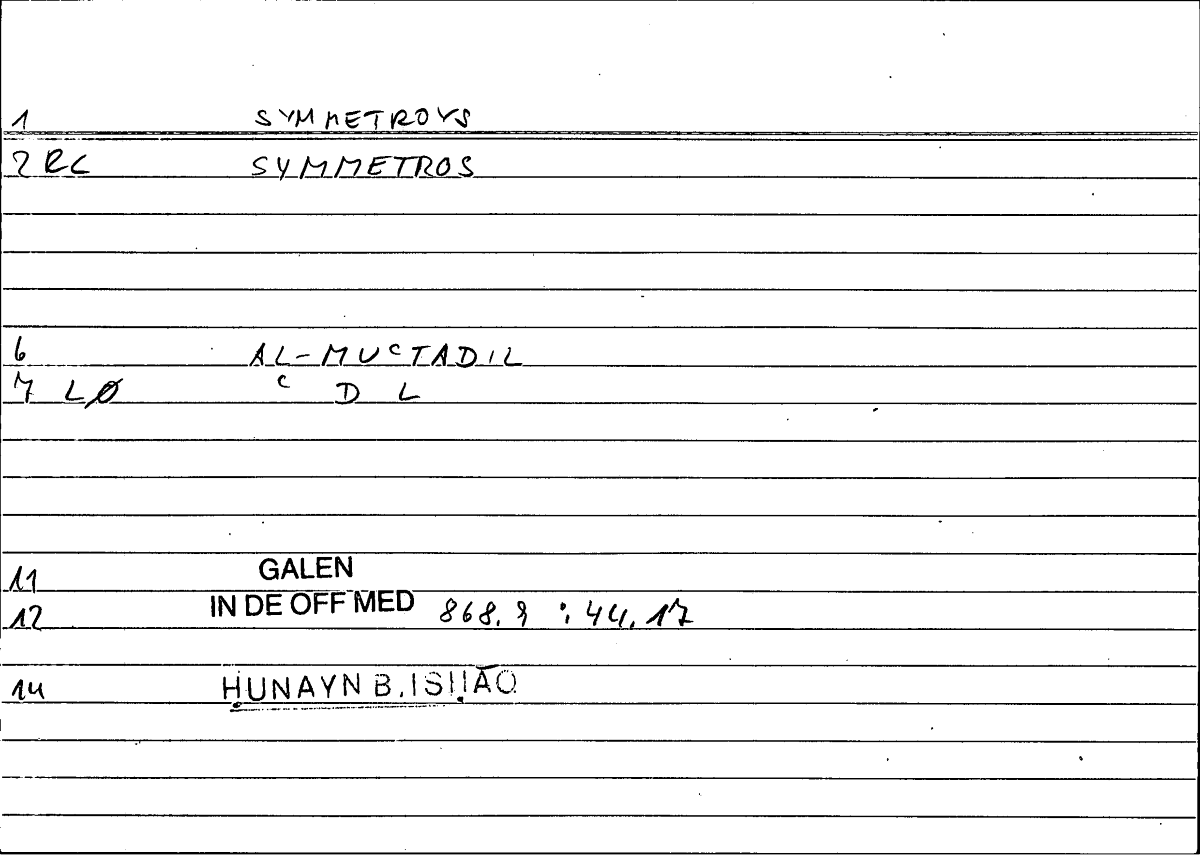 1 SYMMETROYS
2 RC SYMMETROS
6 AL-MUᶜTADIL
7 LØ ᶜ D L
11 GALEN
12 IN DE OFF MED 868.9 : 44.17
14 ḤUNAYN B. ISḤĀQ